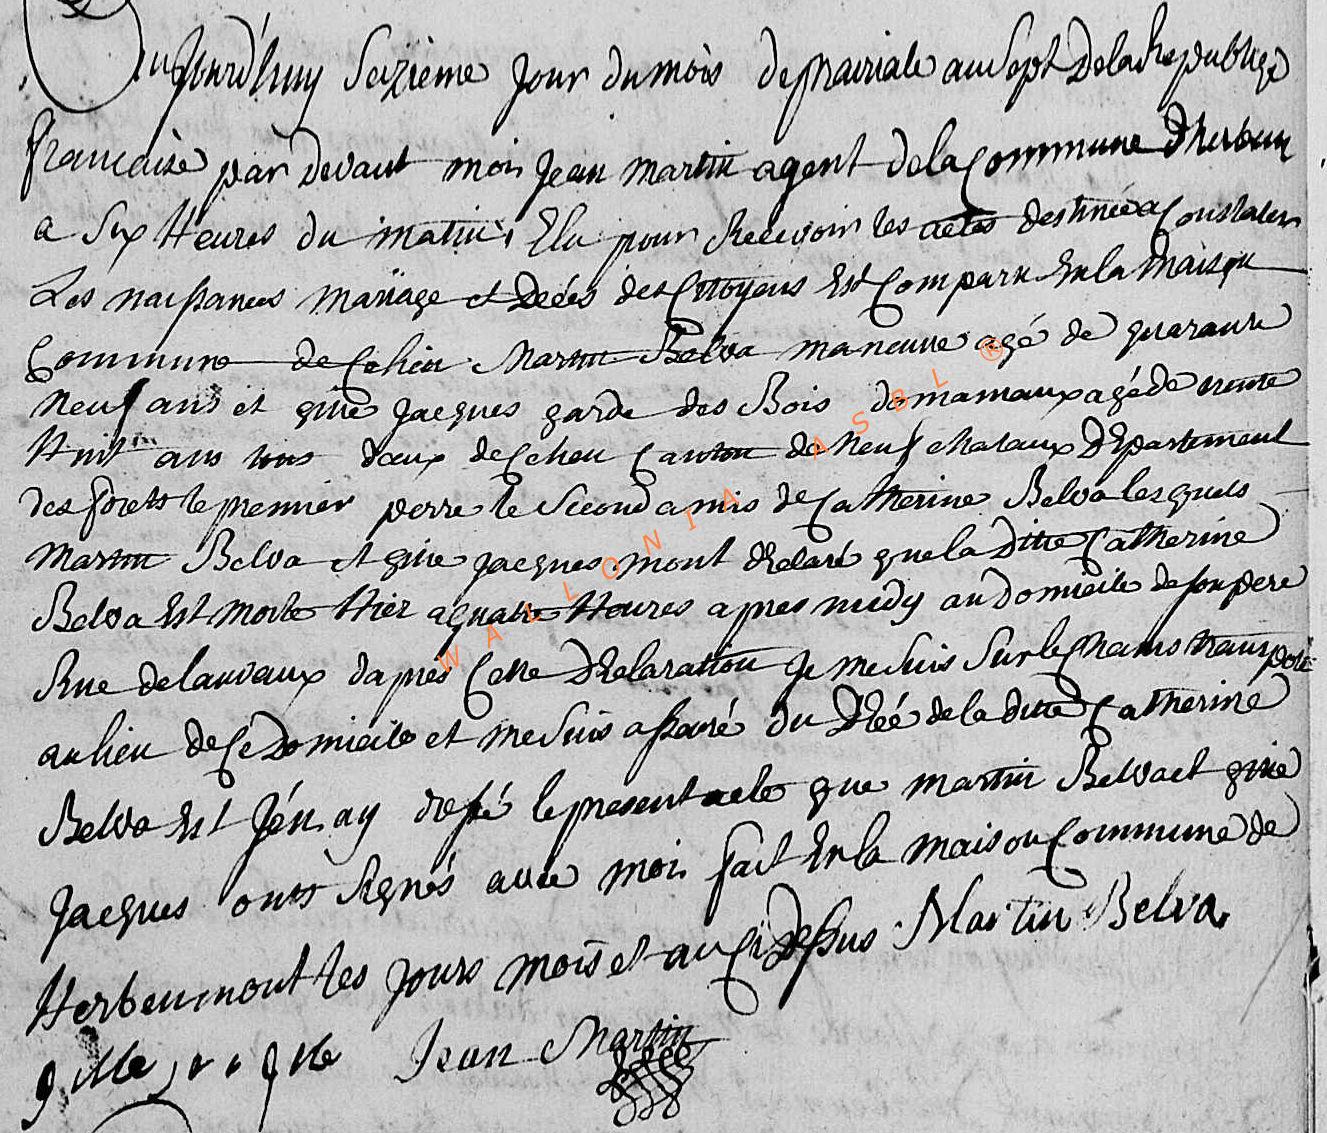 aujourdhuy Seizieme Jour du mois de prairiale an Sept De la Republique
francaise par Devant moi Jean Martin agent de la Commune Dherbeum
a Six Heures du matin, Elu pour Recevoir les actes destinée a Constater
Les naissances mariage et Décés des Citoyens Est Comparu En la Maison
Commune de Ce lieu Martin Belva maneuvre agé de quarante
Neuf ans et Gille Jacques garde des Bois domaniaux agé de trente
Huit ans tous deux de Ce lieu Canton de Neufchataux Département
des forets le premier perre le Second amis de Catherine Belva lesquels
Martin Belva et Gille Jacques mont Déclaré que la Ditte Catherine
Belva Est Morte Hier a quatre Heures apres midy au Domicile de son pere
Rue de lauvaux dapres Cette Déclaration Je me Suis Sur le Chams transporté
au lieu de Ce Domicile et me Suis assuré du Décé de la ditte Catherine
Belva Est J'en ay dressé le present acte que Martin Belva et Gille
Jacques onts Signés avec moi fait En la maison Commune de
Herbeumont les Jours mois et an Ci Dessus Martin Belva
gille Jean Martin
WALLONIA ASBL ®